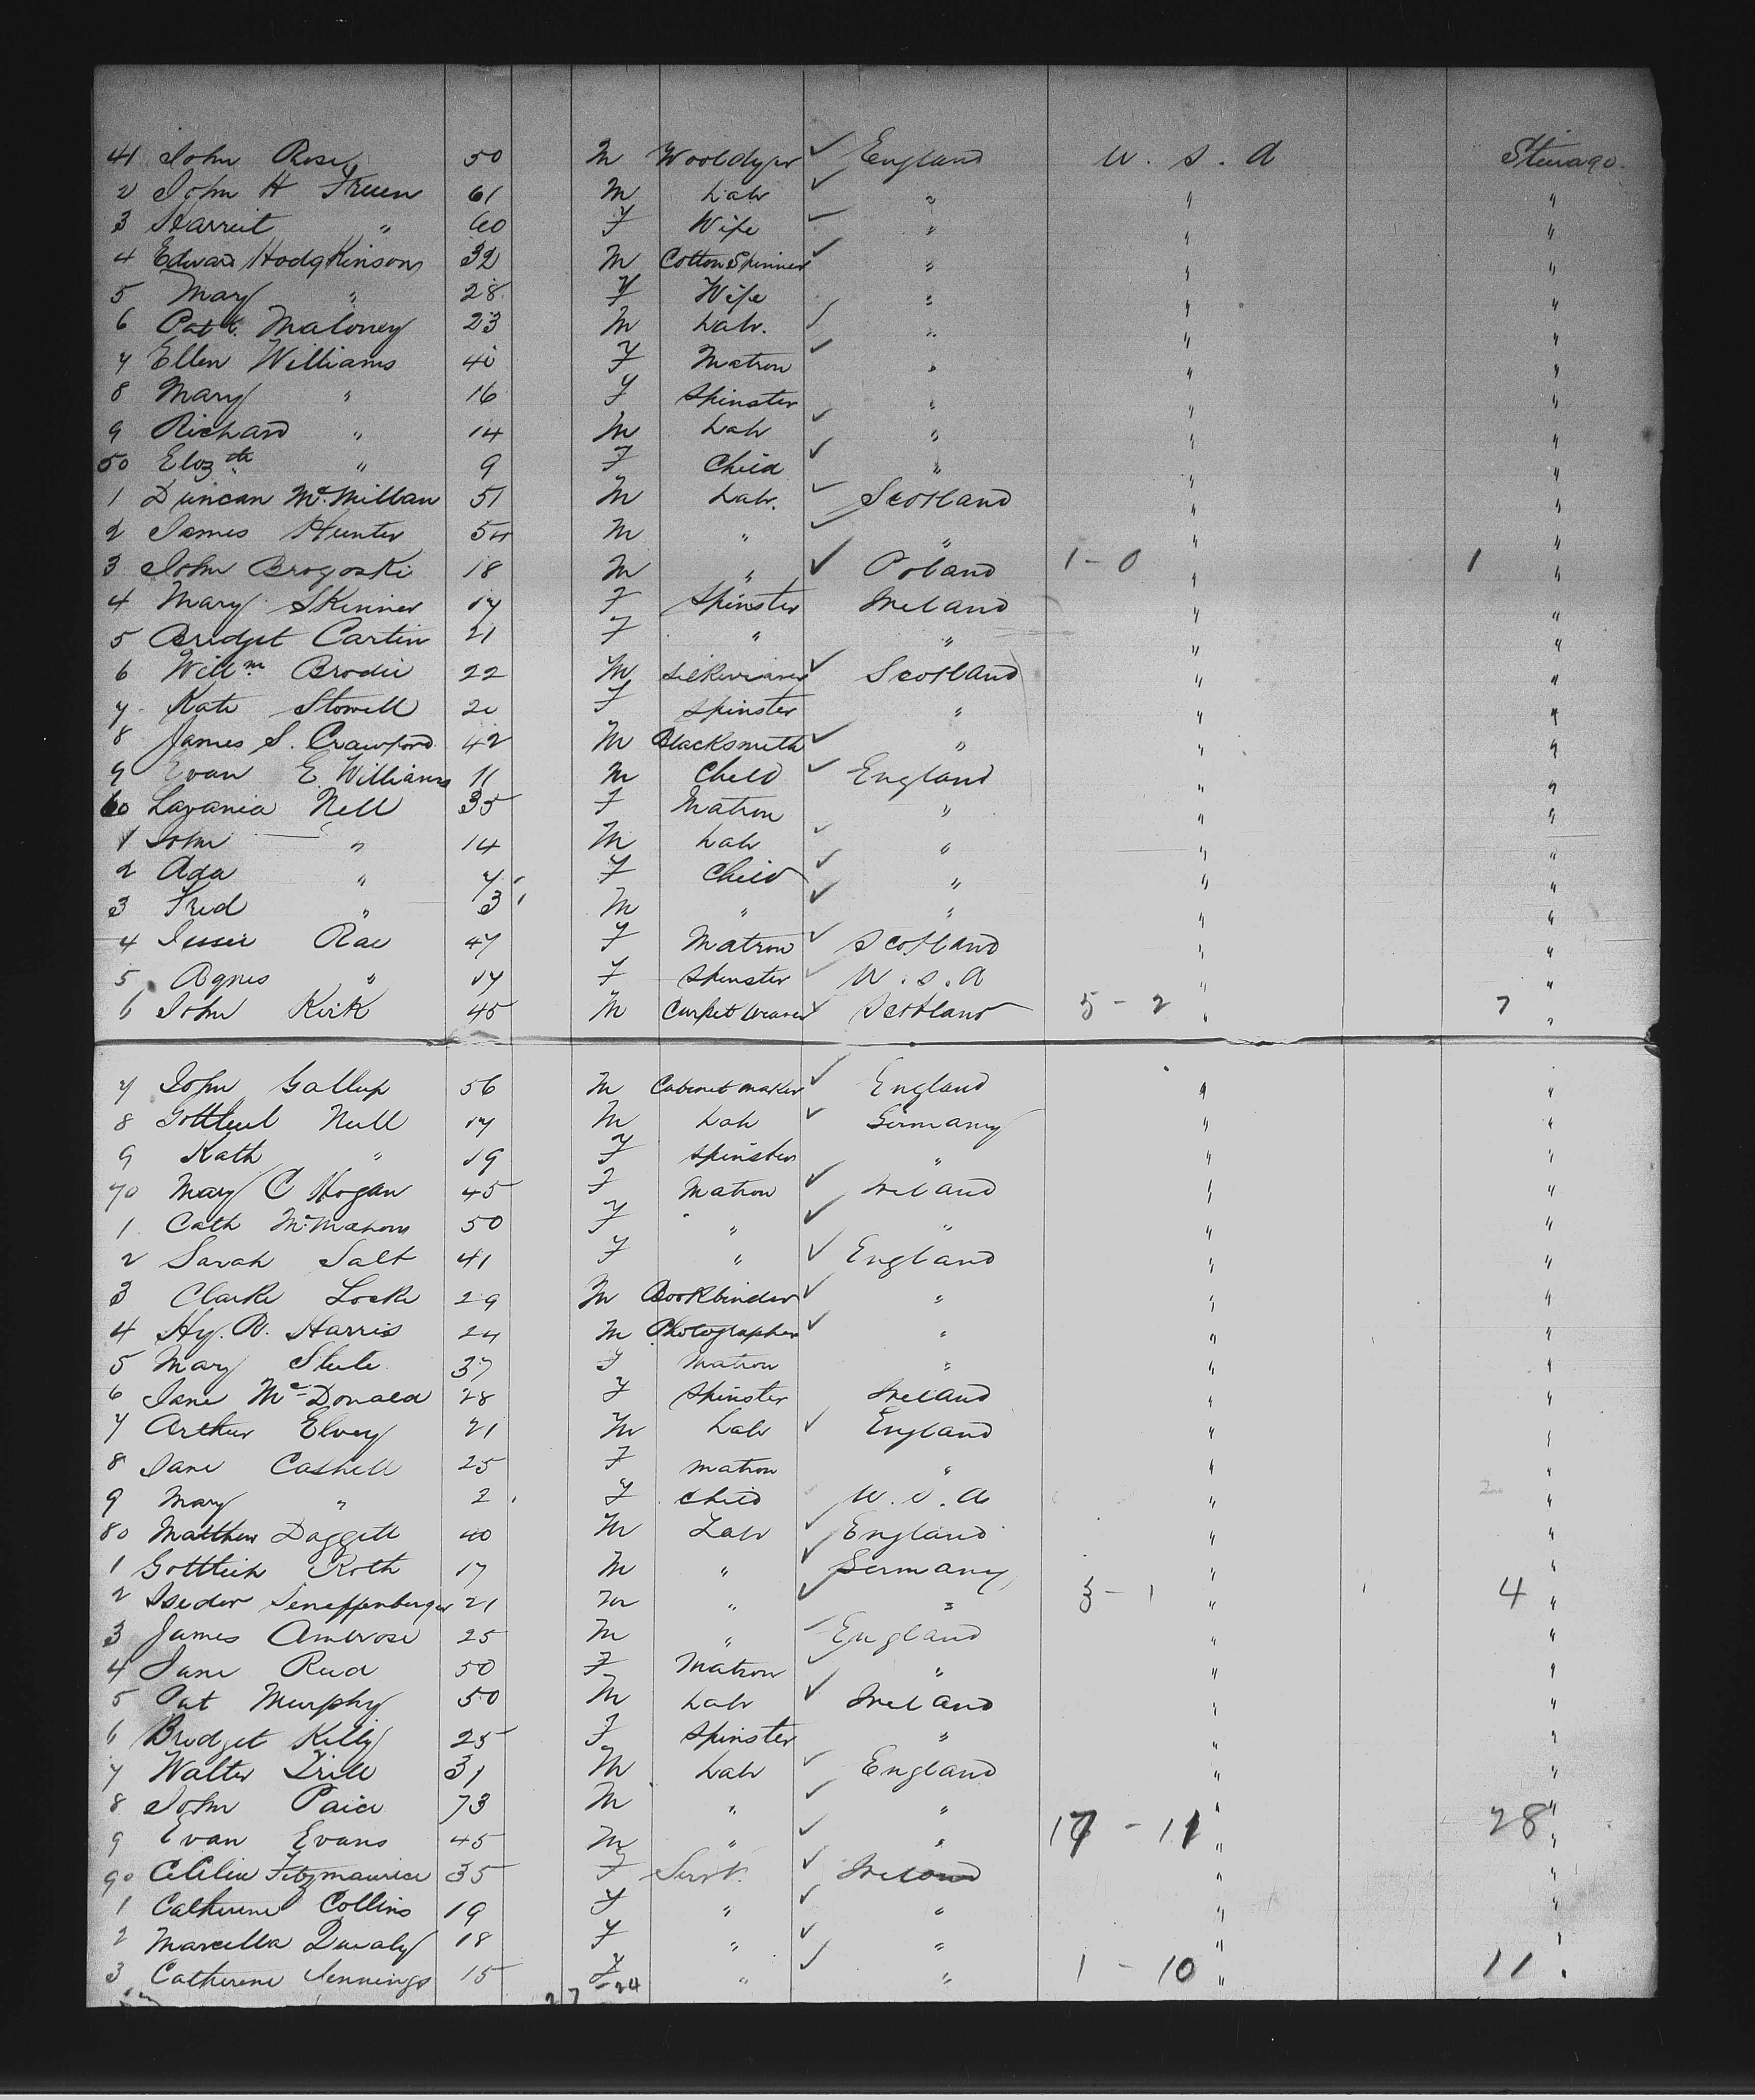 41 John Rose 50 M Wooldyer ✓ England U. S. A Steerage.
2 John H Freen 61 M Labr ✓ " " "
3 Harriet " 60 F Wife ✓ " " "
4 Edward Hodgkinson 32 M Cotton Spinner ✓ " " "
5 Mary " 28 F Wife " " "
6 Patk. Maloney 23 M Labr. ✓ " " "
7 Ellen Williams 40 F Matron ✓ " " "
8 Mary " 16 F Spinster " " "
9 Richard " 14 M Labr ✓ " " "
50 Elizth " 9 F Child ✓ " " "
1 Duncan McMillan 51 M Labr. ✓ Scotland " "
2 James Hunter 54 M " ✓ " " "
3 John Brogoski 18 M " ✓ Poland 1-0 " 1 "
4 Mary Skinner 17 F Spinster Ireland " "
5 Bridget Cartin 21 F " " " "
6 Willm Brodie 22 M Silkweaver ✓ Scotland " "
7 Kate Stowell 20 F Spinster " " "
8 James S. Crawford 42 M Blacksmith ✓ " " "
9 Evan E. Williams 11 M Child ✓ England " "
60 Lavania Nell 35 F Matron " " "
1 John " 14 M Labr ✓ " " "
2 Ada " 7 F Child ✓ " " "
3 Fred " 3 M " ✓ " " "
4 Jessie Rae 47 F Matron ✓ Scotland " "
5 Agnes " 17 F Spinster ✓ U.S.A " "
6 John Kirk 45 M Carpet Weaver ✓ Scotland 5-2 " 7 "
7 John Gallup 56 M Cabinet maker ✓ England " "
8 Gottleib Null 17 M Labr ✓ Germany " "
9 Kath " 19 F Spinster " " "
70 Mary C Hogan 45 F Matron ✓ Ireland " "
1 Cath McMahon 50 F " ✓ " " "
2 Sarah Salt 41 F " ✓ England " "
3 Clarke Locke 29 M Bookbinder ✓ " " "
4 Hy. R. Harris 24 M Photographer ✓ " " "
5 Mary Steele 37 F Matron " " "
6 Jane McDonald 28 F Spinster Ireland " "
7 Arthur Elvey 21 M Labr ✓ England " "
8 Jane Cashell 25 F matron " " "
9 Mary " 2 F Child U.S.A " "
80 Matthew Daggett 40 M Labr ✓ England " "
1 Gottleib Roth 17 M " ✓ Germany " "
2 Isedor 21 M " ✓ " 3-1 " 4 "
3 James Ambrose 25 M " ✓ England " "
4 Jane Reid 50 F Matron ✓ " " "
5 Pat Murphy 50 M Labr ✓ Ireland " "
6 Bridget Kelly 25 F Spinster " " "
7 Walter Trill 31 M Labr ✓ England " "
8 John Paice 73 M " ✓ " " "
9 Evan Evans 45 M " ✓ " 17-11 " 28 "
90 Cecilia Fitzmaurice 35 F Servt. ✓ Ireland " "
1 Catherine Collins 19 F " ✓ " " "
2 Marcella 18 F " ✓ " " "
3 Catherine Jennings 15 F " ✓ " 1-10 " 11 "
27-24